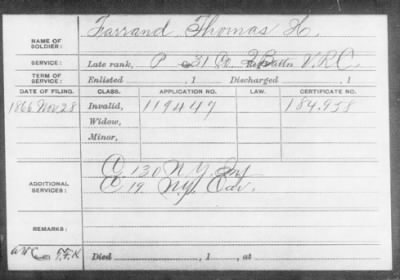 NAME OF SOLDIER: Farrand Thomas H.
SERVICE: Late rank, P 31 Co 2 Battn V.R.C.
TERM OF SERVICE: Enlisted , 1 Discharged , 1
DATE OF FILING. CLASS. APPLICATION NO. LAW. CERTIFICATE NO.
1866 Nov. 28 Invalid, 119447 184,958
Widow,
Minor,
ADDITIONAL SERVICES: C. 130 N.Y. Inf
C 19. N.Y. Cav.
REMARKS:
Died , 1 , at